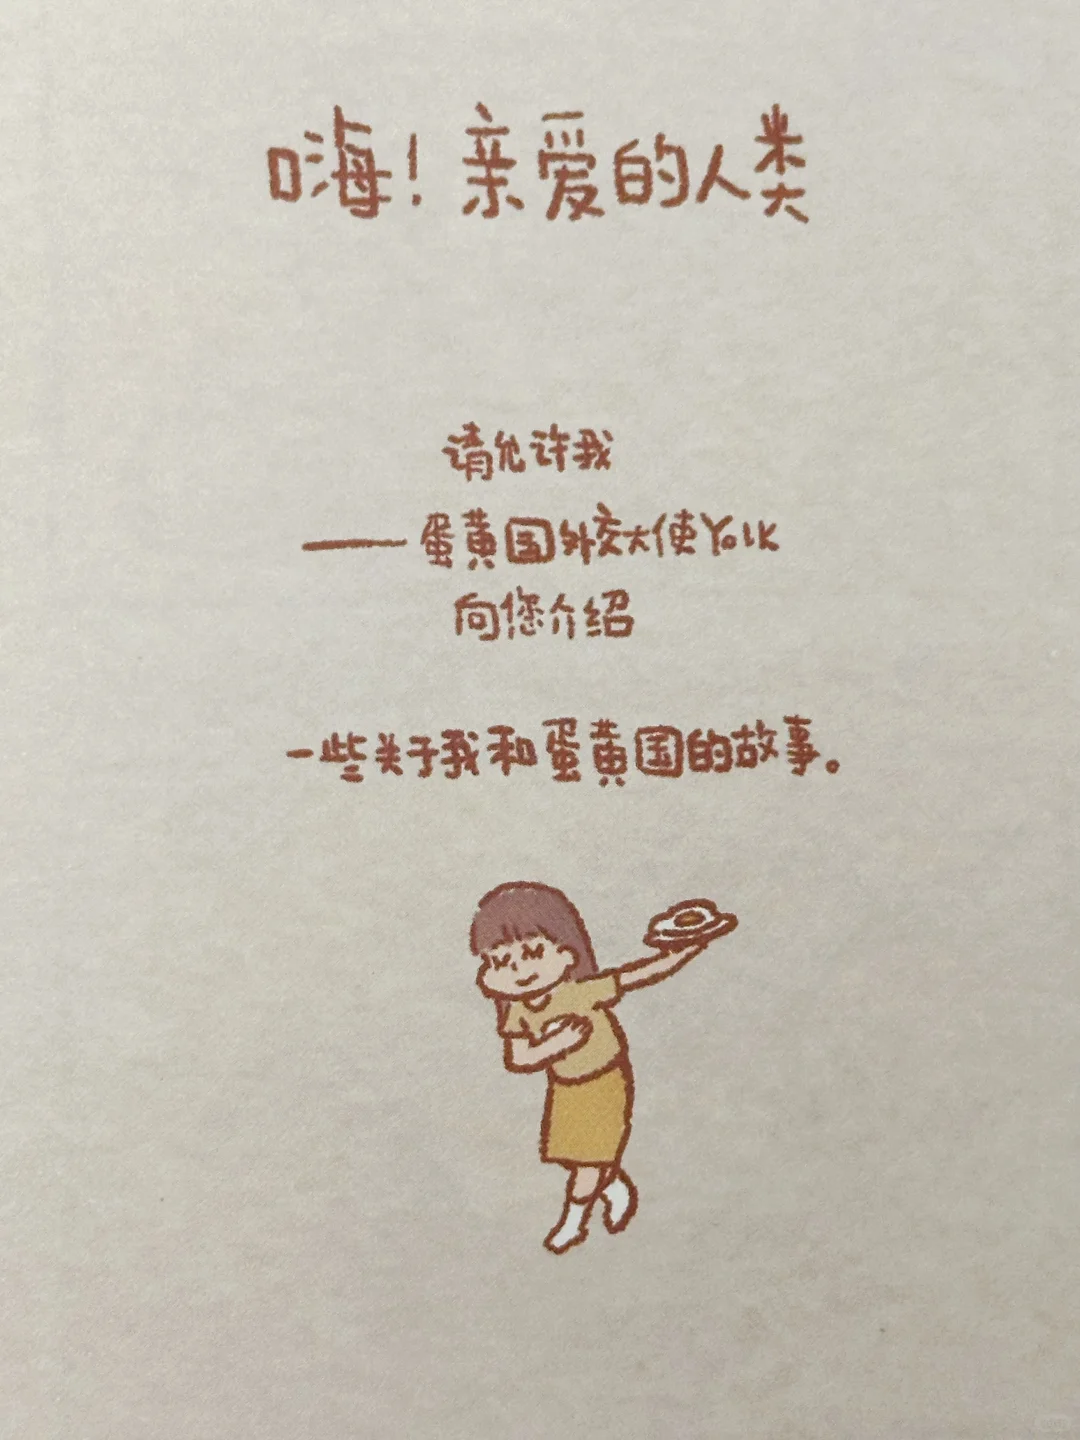 嗨！亲爱的人类
请允许我
——蛋黄国外交大使Yolk
向您介绍
一些关于我和蛋黄国的故事。